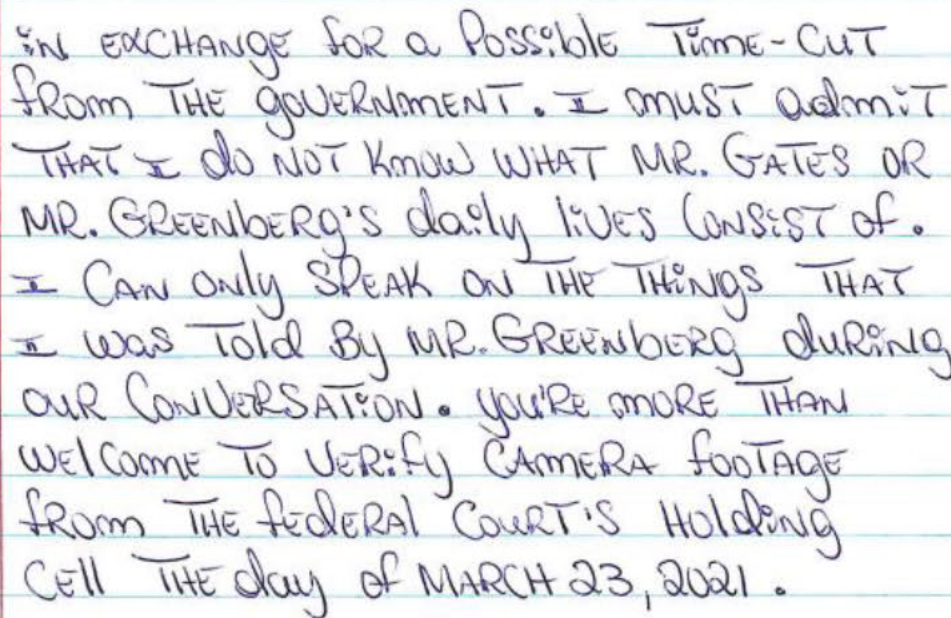 iN EXCHANgE foR a PoSSible Time-CuT
fRom THE goVERNmENT. I muST admiT
THAT I do NOT Know WHAT MR. GATES OR
MR. GREENbERg'S daily liVES CoNSiST of.
I CAN oNly SPEAK ON THE THiNgS THAT
I was Told By MR. GREENbERg duRiNg
ouR CoNVERSATioN. you'RE moRE THAN
WElComE To VERify CAmERA fooTAgE
fRom THE fEdERAl CouRT'S HoldiNg
CEll THE day of MARCH 23, 2021.